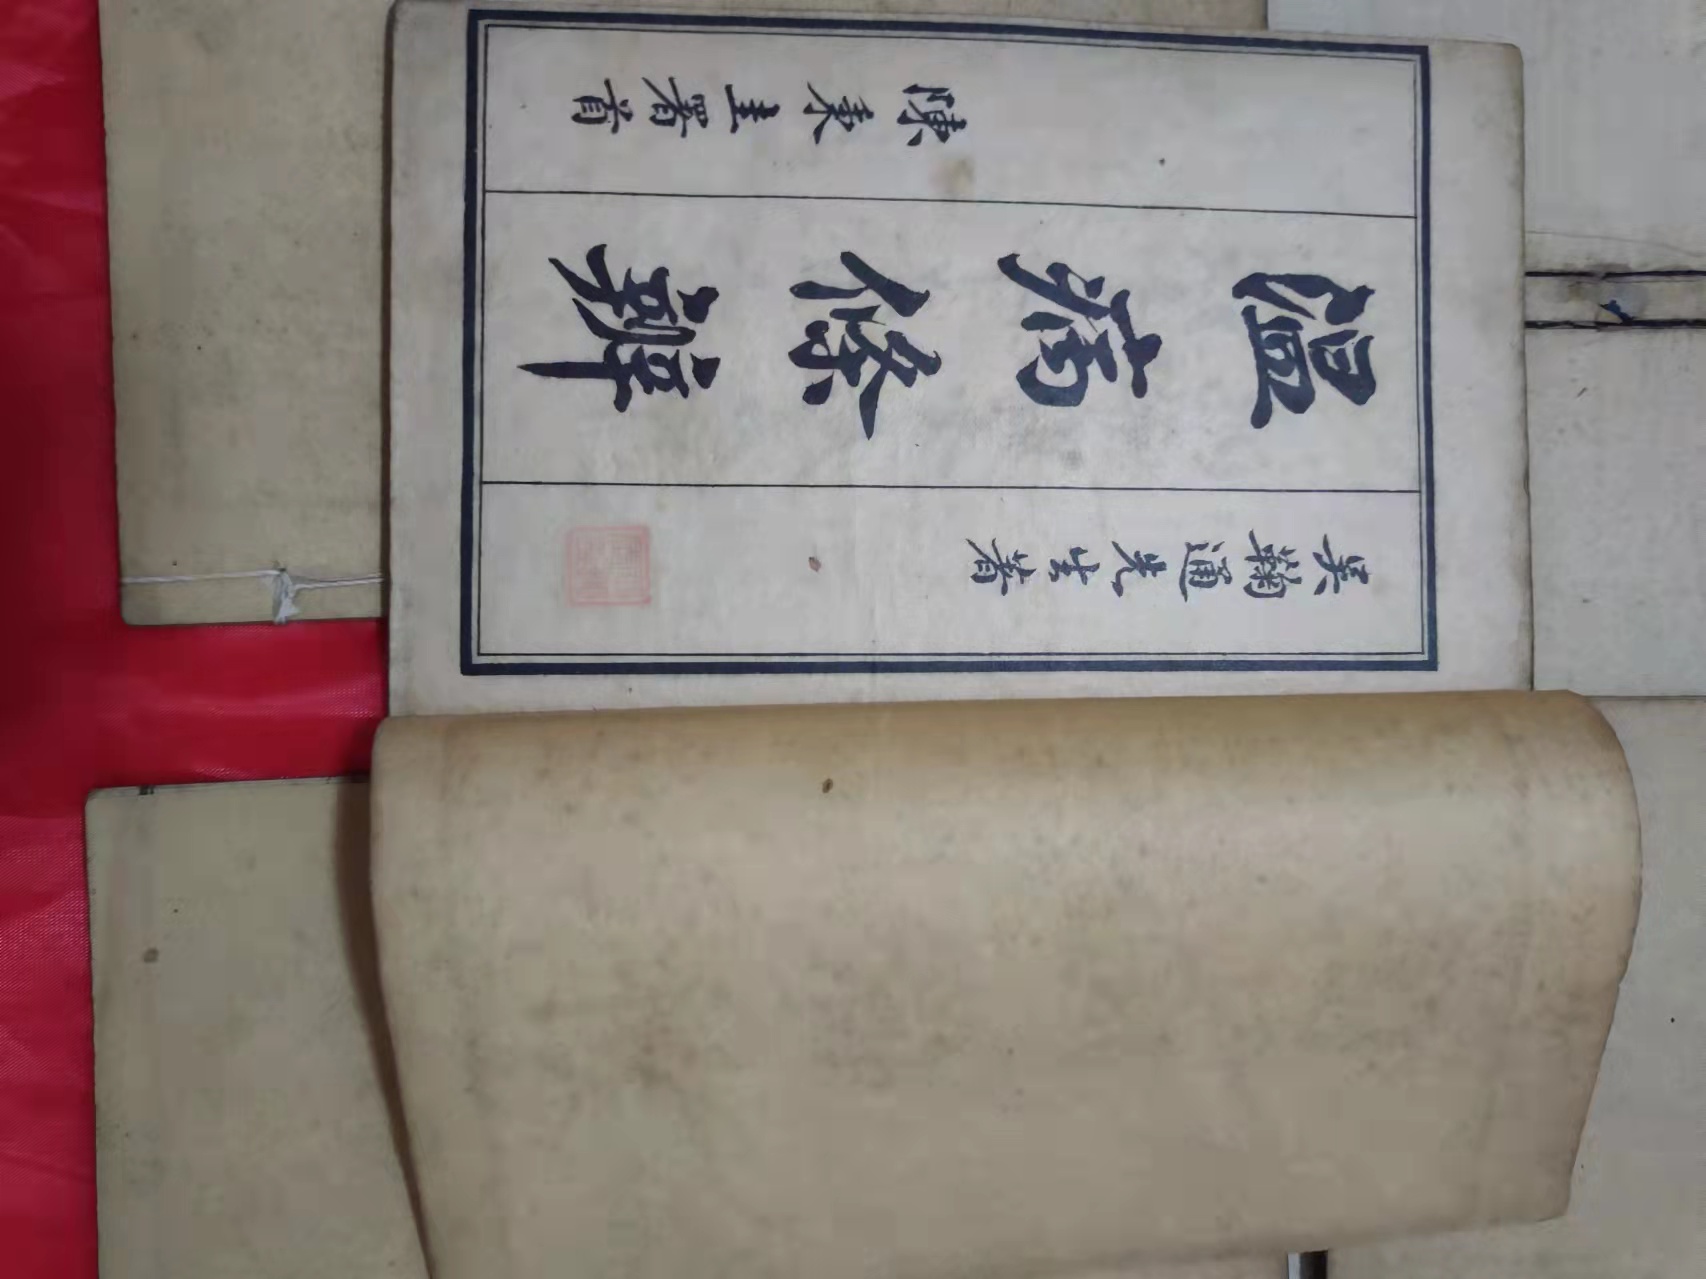 吳鞠通先生著
溫病條辨
陳秉圭署首